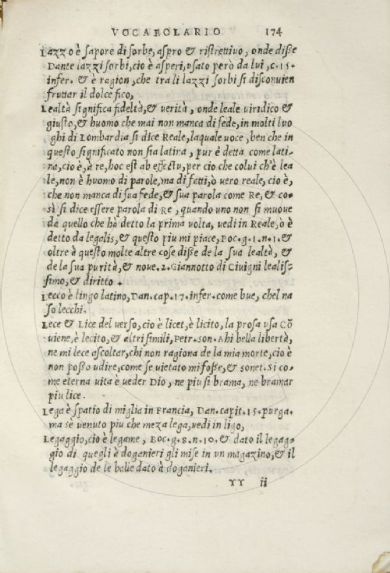 VOCABOLARIO 174
Lazzo è sapore di sorbe, aspro & ristrettivo, onde disse
Dante lazzi sorbi, cio è asperi, usato però da lui, c. 15.
infer. & è ragion, che tra li lazzi sorbi si disconuien
fruttar il dolce fico,
Lealtà significa fideltà, & verità, onde leale viridico &
giusto, & huomo che mai non manca di fede, in molti luo
ghi di Lombardia si dice Reale, laquale uoce, ben che in
questo significato non sia latina, pur è detta come lati-
na, cio è, è re, hoc est ab effectu, per cio che colui ch'è lea
le, non è huomo di parole, ma di fatti, ò vero reale, cio è,
che non manca di sua fede, & sua parola come Re, & co-
sì si dice essere parola di Re, quando uno non si muoue
da quello che hà detto la prima volta, vedi in Reale, ò è
detto da legalis, & questo piu mi piace, Boc. g. 1. n. 1. &
oltre è questo molte altre cose disse de la sua lealtà, &
de la sua purità, & noue. 2. Giannotto di Ciuigni lealis-
simo, & diritto.
Lecco è lingo latino, Dan. cap. 17. infer. come bue, chel na
so lecchi.
Lece & Lice del verso, cio è licet, è licito, la prosa vsa Cō
uiene, è lecito, & altri simili, Petr. son. Ahi bella libertà,
ne mi lece ascoltar, chi non ragiona de la mia morte, cio è
non posso udire, come se uietato mi fosse, & sonet. Si co-
me eterna vita è ueder Dio, ne piu si brama, ne bramar
piu lice.
Lega è spatio di miglia in Francia, Dan. capit. 15. purga.
ma se venuto piu che meza lega, vedi in ligo,
Legaggio, cio è legame, Boc. g. 8. n. 10. & dato il legag-
gio di quegli è doganieri gli mise in vn magazino, & il
legaggio de le balle dato à doganieri.
YY ii